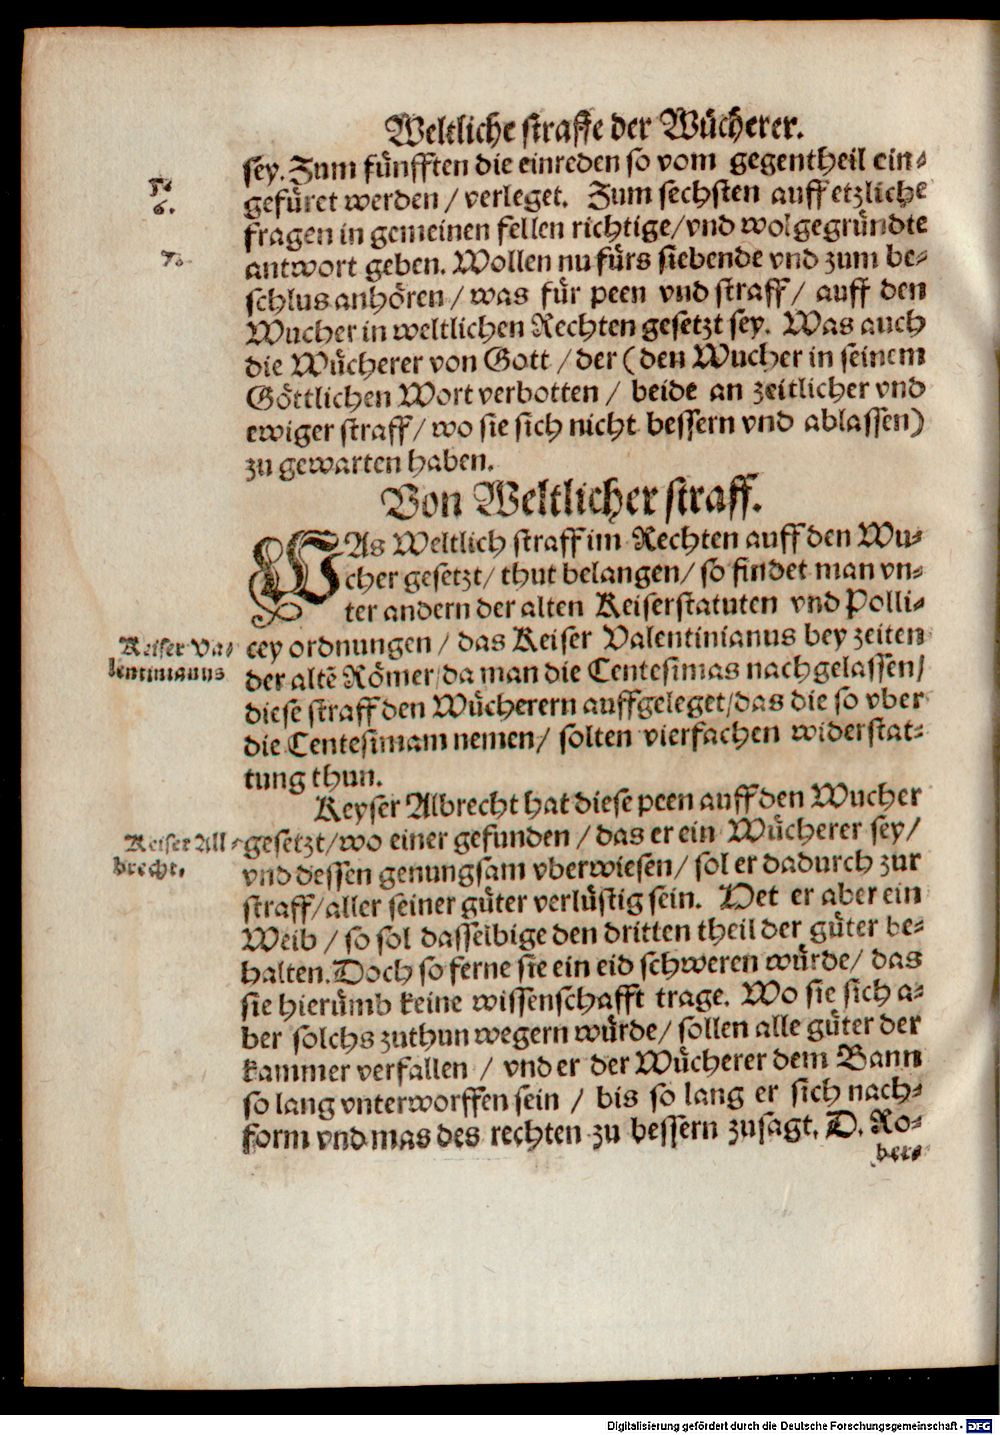 Weltliche straffe der Wücherer.
sey. Zum fünfften die einreden so vom gegentheil ein-
5.
6.
gefüret werden / verleget. Zum sechsten auff etzliche
fragen in gemeinen fellen richtige/ vnd wolgegründte
7.
antwort geben. Wollen nu fürs siebende vnd zum be-
schlus anhören / was für peen vnd straff/ auff den
Wucher in weltlichen Rechten gesetzt sey. Was auch
die Wücherer von Gott / der (den Wucher in seinem
Göttlichen Wort verbotten / beide an zeitlicher vnd
ewiger straff/ wo sie sich nicht bessern vnd ablassen)
zu gewarten haben.
Von Weltlicher straff.
WAs Weltlich straff im Rechten auff den Wu-
cher gesetzt/ thut belangen/ so findet man vn-
ter andern der alten Keiserstatuten vnd Polli-
Keiser Va-
lentinianus
cey ordnungen / das Keiser Valentinianus bey zeiten
der altē Römer/ da man die Centesimas nachgelassen/
diese straff den Wücherern auffgeleget/ das die so vber
die Centesimam nemen/ solten vierfachen widerstat-
tung thun.
Keyser Albrecht hat diese peen auff den Wucher
Keiser Al-
brecht.
gesetzt/ wo einer gefunden / das er ein Wücherer sey/
vnd dessen genungsam vberwiesen/ sol er dadurch zur
straff/ aller seiner güter verlüstig sein. Het er aber ein
Weib / so sol dasselbige den dritten theil der güter be-
halten. Doch so ferne sie ein eid schweren würde/ das
sie hierümb keine wissenschafft trage. Wo sie sich a-
ber solchs zuthun wegern würde/ sollen alle güter der
kammer verfallen / vnd er der Wücherer dem Bann
so lang vnterworffen sein / bis so lang er sich nach-
form vnd mas des rechten zu bessern zusagt. D. Ro-
ber-
Digitalisierung gefördert durch die Deutsche Forschungsgemeinschaft - DFG